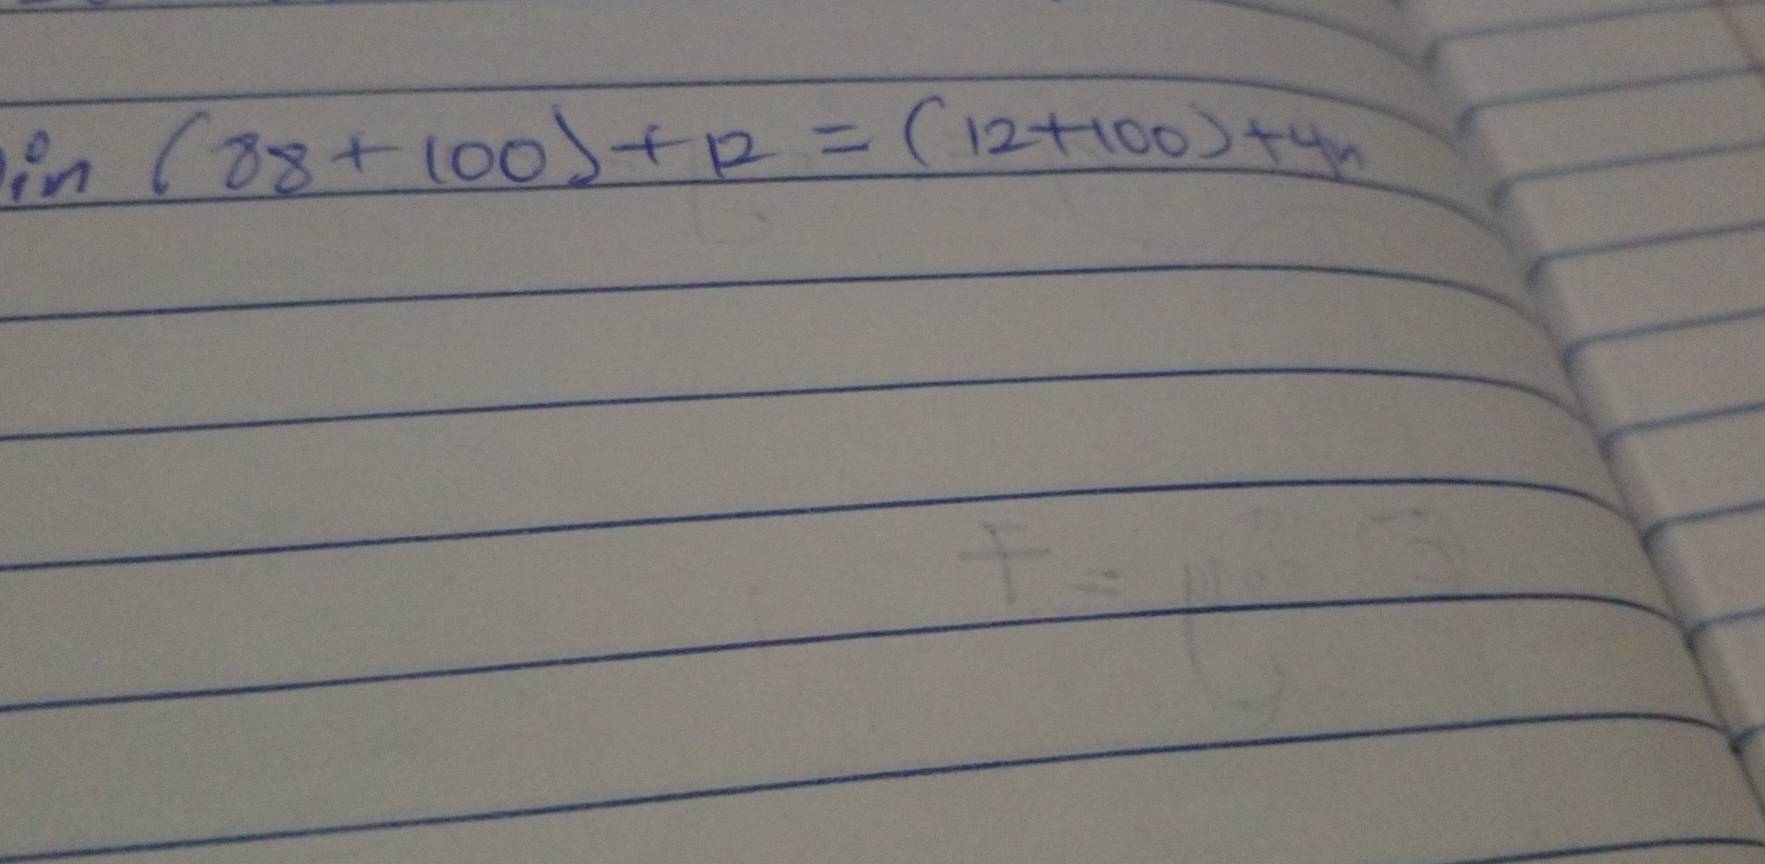 in (88+100)+12 = (12+100)+4n